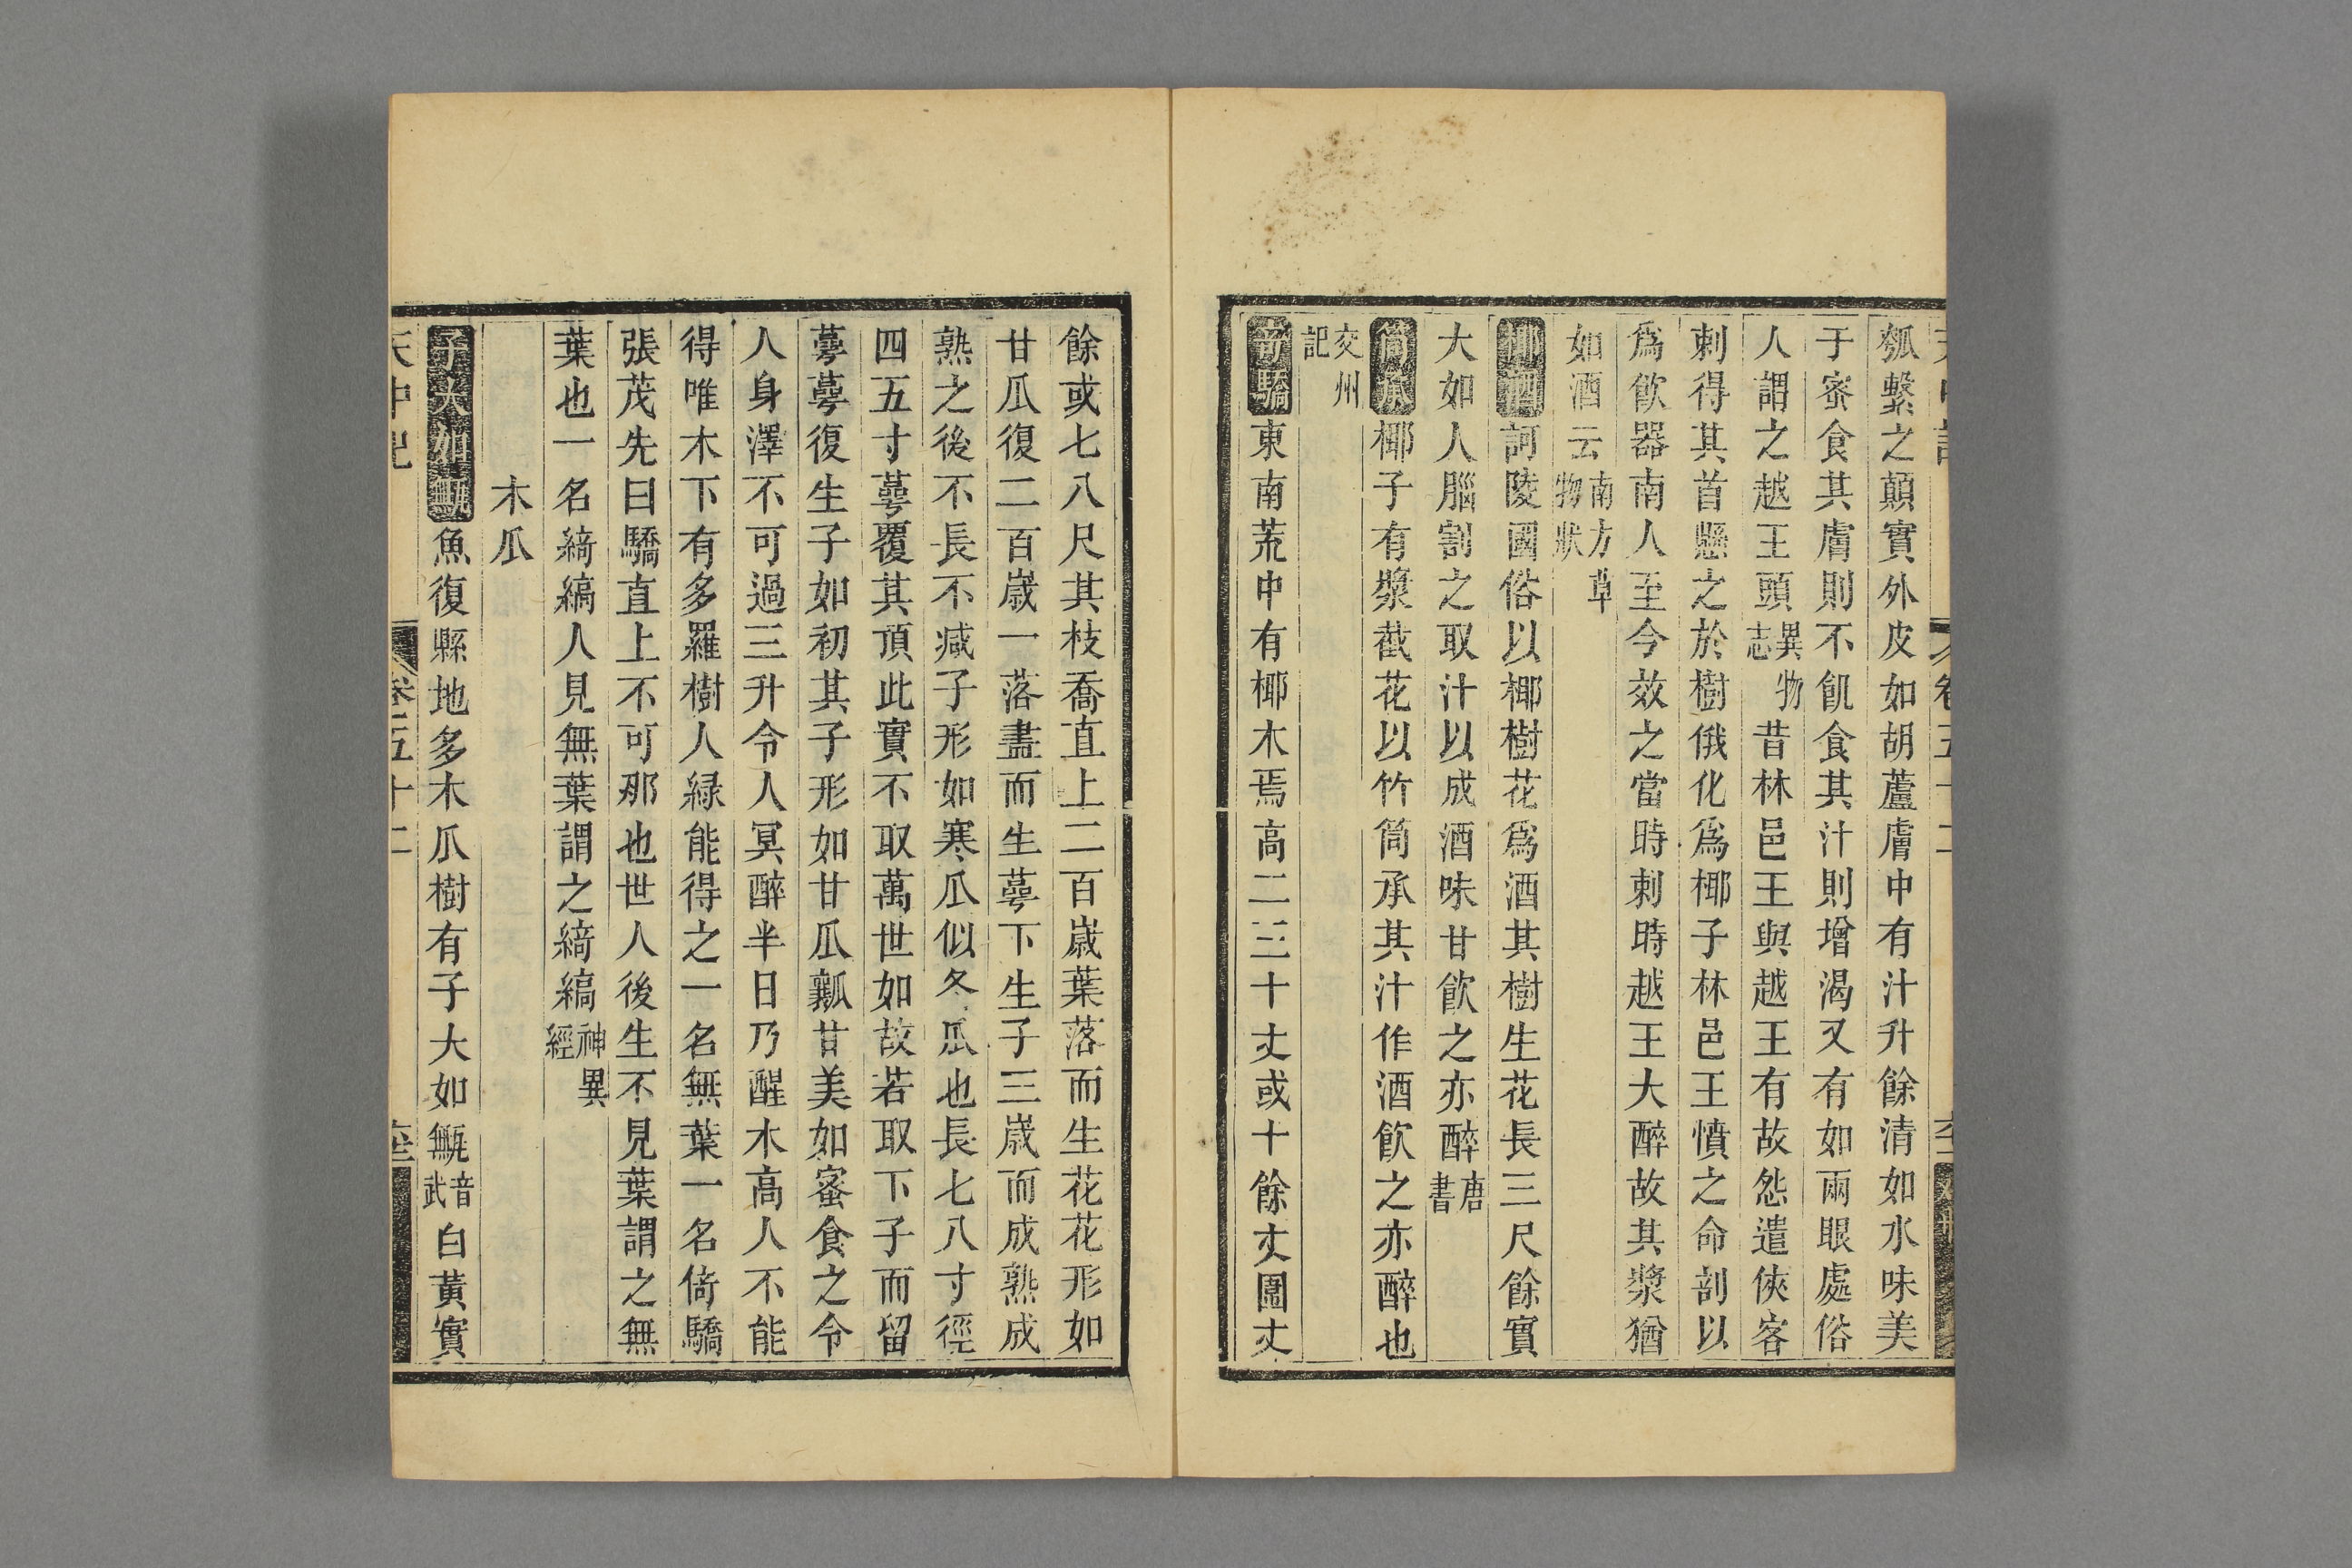 瓠繫之顛實外皮如胡蘆膚中有汁升餘清如水味美
于蜜食其膚則不飢食其汁則增渴又有如兩眼處俗
人謂之越王頭異物志昔林邑王與越王有故怨遣俠客
刺得其首懸之於樹俄化爲椰子林邑王憤之命剖以
爲飲器南人至今效之當時刺時越王大醉故其漿猶
如酒云南方草物狀
椰酒訶陵國俗以椰樹花爲酒其樹生花長三尺餘實
大如人腦割之取汁以成酒味甘飲之亦醉唐書
筒承椰子有漿截花以竹筒承其汁作酒飲之亦醉也
交州記
奇驕東南荒中有椰木焉高二三十丈或十餘丈圍丈
餘或七八尺其枝喬直上二百歲葉落而生花花形如
甘瓜復二百歲一落盡而生萼下生子三歲而成熟成
熟之後不長不減子形如寒瓜似冬瓜也長七八寸徑
四五寸萼覆其頂此實不取萬世如故若取下子而留
萼萼復生子如初其子形如甘瓜瓤甘美如蜜食之令
人身澤不可過三升令人冥醉半日乃醒木高人不能
得唯木下有多羅樹人緑能得之一名無葉一名倚驕
張茂先曰驕直上不可那也世人後生不見葉謂之無
葉也一名綺縞人見無葉謂之綺縞神異經
木瓜
子大如甒魚復縣地多木瓜樹有子大如甒音武白黃實
天中記 卷五十二